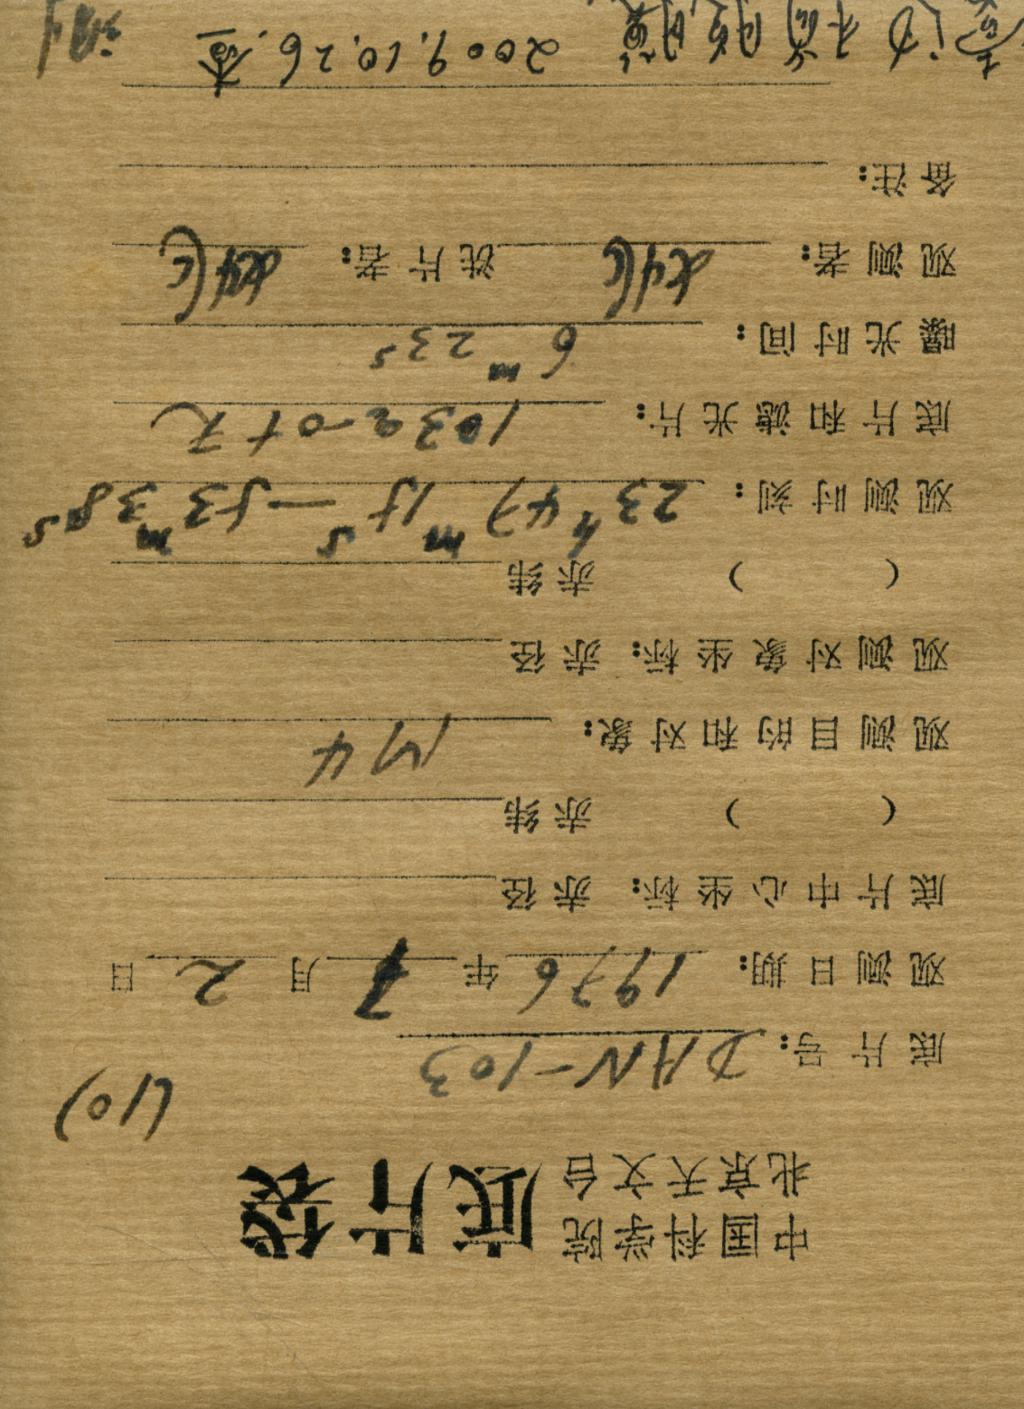 中国科学院
北京天文台
底片袋
(10)
底片号: DAN-103
观测日期: 1976年7月2日
底片中心坐标: 赤径
( ) 赤纬
观测目的和对象: M4
观测对象坐标: 赤径
( ) 赤纬
观测时刻: 23h47m15s—53m38s
底片和滤光片: 103a-O+无
曝光时间: 6m23s
观测者: 洗片者:
备注:
2009.10.26.查